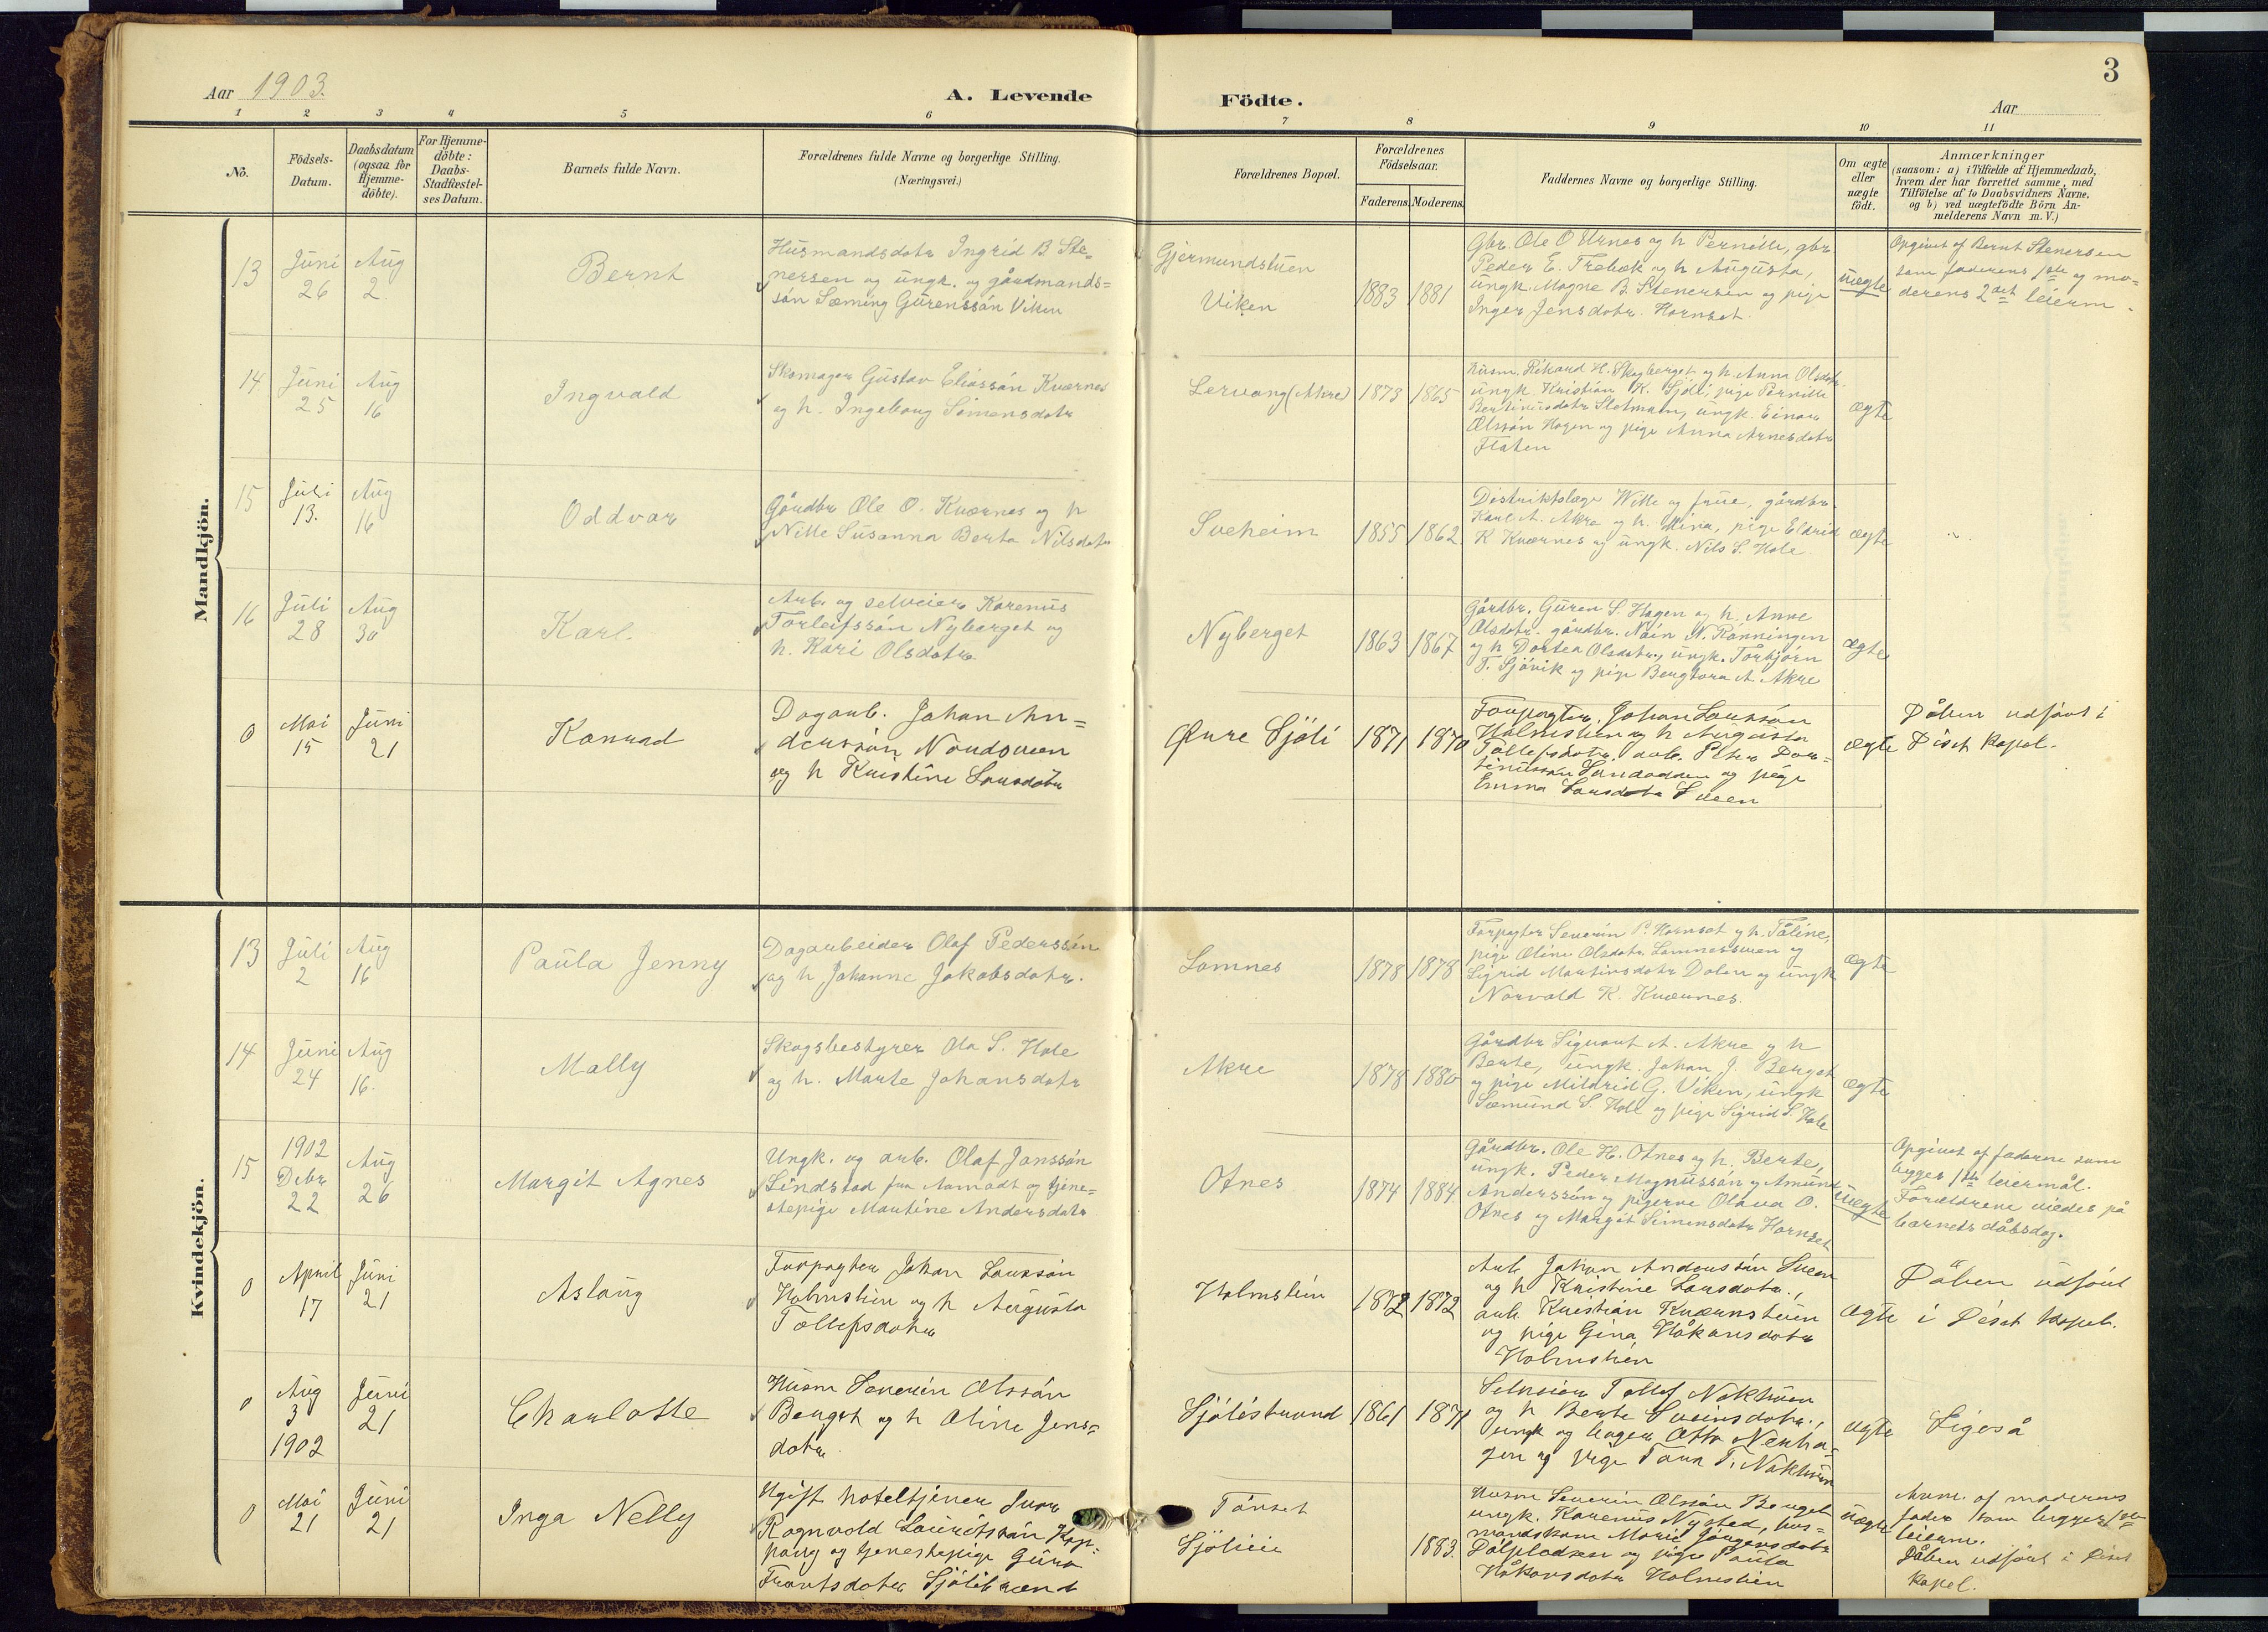 3
Aar 1903.
A. Levende Födte.
Aar
1 2 3 4 5 6 7 8 9 10 11
Nô.
Födsels-Datum.
Daabsdatum (ogsaa for Hjemme-döbte).
For Hjemme-döbte: Daabs-Stadfæstel-ses Datum.
Barnets fulde Navn.
Forældrenes fulde Navne og borgerlige Stilling.
(Næringsvei.)
Forældrenes Bopæl.
Forældrenes Födselsaar.
Faderens. Moderens.
Faddernes Navne og borgerlige Stilling.
Om ægte eller uægte födt.
Anmærkninger
(saasom: a) i Tilfælde af Hjemmedaab,
hvem der har forrettet samme, med
Tilföielse af to Daabsvidners Navne,
og b) ved uægtefödte Börn An-
melderens Navn m. V.)
Mandkjön.
13
Juni 26
Aug 2.
Bernt
Husmandsdatr Ingrid B Ste-
nersen og ungk. og gårdmands-
søn Sæming Gurenssøn Viken
Gjermundstuen
Viken
1883 1881
Gbr. Ole O Urnes og h Pernille, gbr
Peder E. Trebæk og h Augusta,
ungk. Magne B. Stenersen og pige
Inger Jensdatr. Hornset.
uægte
Opgivet af Bernt Stenersen
som faderens 1ste og mo-
derens 2det leierm.
14.
Juni 25
Aug 16
Ingvald
Skomager Gustav Eliassøn Kværnes
og h. Ingeborg Simensdatr
Lervang (Akre)
1873 1865
Husm. Rikard H. Skyberget og h. Anna Olsdatr
ungk Kristian K. Sjöli, pige Pernille
Bertinusdatr Slotmoen, ungk. Einar
Olssøn Hagen og pige Anna Arnesdatr
Flaten
ægte
15
Juli 13.
Aug 16
Oddvar
Gårdbr Ole O. Kværnes og h
Nille Susanna Berta Nilsdatr
Sveheim
1855 1862.
Distriktslæge Wille og frue, gårdbr.
Karl A. Akre og h. Mina, pige Eldrid
K Kværnes og ungk. Nils S. Hole
ægte
16
Juli 28
Aug 30
Karl.
Arb. og selveier Karenus
Torleifssøn Nyberget og
h. Kari Olsdatr.
Nyberget
1863 1867
Gårdbr. Guren S. Hagen og h. Anne
Olsdatr. gårdbr. N. Rønningen
og h Dortea Olsdatr, ungk. Torbjørn
T. Sjövik og pige Bergtora A Akre
ægte
0
Mai 15
Juni 21
Konrad
Dagarb. Johan An-
derssøn Nordsveen
og h Kristine Larsdatr
Øvre Sjöli
1871 1870
Forpagter. Johan Larssøn
Holmstien og h Augusta
Tollefsdatr, arb. Peter Dor-
tinussøn Sandodden og pige
Emma Larsdatr Sveen
ægte
Dåben udført i
Diset Kapel.
Kvindekjön.
13
Juli 2
Aug 16
Paula Jenny
Dagarbeider Olaf Pederssøn
og h Johanne Jakobsdatr.
Lomnes
1878 1878
Forpagter Severin P. Hornset og h. Tåline,
pige Oline Olsdatr Lomnessveen og
Sigrid Martinsdatr Dalen og ungk
Norvald K. Kværnes.
ægte
14
Juni 24
Aug 16.
Mally
Skogsbestyrer Ola S. Hole
og h. Marte Johansdatr
Akre
1878 1880
Gårdbr Sigvart A. Akre og h
Berte, ungk. Johan J. Berget
og pige Mildrid G. Viken, ungk
Sæmund S. Hole og pige Sigrid S. Hole
ægte
15
1902 Debr 22
Aug 26
Margit Agnes
Ungk. og arb. Olaf Janssøn
Lindstad fra Aamodt og tjene-
stepige Martine Andersdatr
Otnes
1874 1884.
Gårdbr. Ole H. Otnes og h. Berte,
ungk. Peder Magnussøn og Amund
Anderssøn og pigerne Olava O.
Otnes og Margit Simensdatr Hornset
uægte
Opgivet af faderen som
begges 1ste leiermål.
Forældrene viedes på
barnets dåbsdag.
0
April 17
Juni 21
Aslaug
Forpagter Johan Larssøn
Holmstien og h Augusta
Tollefsdatr
Holmstien
1872 1872
Arb. Johan Anderssøn Sveen
og h Kristine Larsdatr.,
arb. Kristian Kværnstuen
og pige Gina Håkonsdatr
Holmstien
ægte
Dåben udført
i Diset Kapel.
0
Aug 3 1902
Juni 21
Charlotte
Husm Severin Olssøn
Berget og h Oline Jens-
datr.
Sjölistrand
1861 1871
Selveier Tollef Nokkuen
og h Berte Sveinsdatr.,
ungk og bager Otto Nerha-
gen og pige Tora T. Nokkuen
ægte
Ligeså
0
Mai 21
Juni 21
Inga Nelly
Ugift hoteltjener Ivar
Ragnvald Lauritssøn Kop-
pang og tjenestepige Gina
Frantsdatr Sjölistrand
Tönset
Sjölien
1883.
Husm Severin Olssøn Berget
ungk. Karenus Nysted, hus-
mandskone Marie Jörgensdatr
Dölpladsen og pige Paula
Håkonsdatr Holmstien
uægte
Anm. af moderens
fader som begges 1ste
leierm.
Dåben udført i Diset
Kapel.